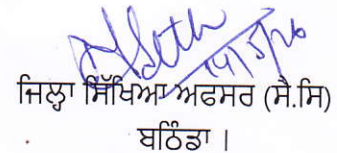 14/5/26
ਜਿਲ੍ਹਾ ਸਿੱਖਿਆ ਅਫਸਰ (ਸੈ.ਸਿ)
ਬਠਿੰਡਾ ।